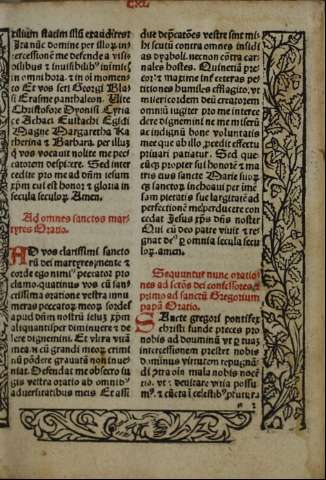 CXL
xilium statim illā exaudiret
Ita nūc domine per illoꝝ in-
tercessionē me defende a visi-
bilibꝰ ⁊ inuisibilibꝰ inimicis
in omni hora. ⁊ in oī momēto
Et vos seti Georgi Blasi
Erasme panthaleon. Uite
Christofore Dyonisi Cyria
ce Achaci Eustachi Egidi
Magne Margaretha Ka
therina ⁊ Barbara. per illuʒ
ꝗ vos vocauit nolite me pec-
catorem despicere. Sed inter
cedite pro me ad dūm iesum
xpm cui est honor ⁊ gloria in
secula seculoꝝ. Amen.
Ad omnes sanctos mar
tyres Oratio.
AD vos clarissimi sancto
rū dei martyres mente ⁊
corde ego nimis peccator pro
clamo. quatinus vos cū san-
ctissima oratione vestra innu
meras peccatoꝝ meoꝝ sordes
apud dūm nostrū iesuʒ xpm
aliquantisper diminuere ⁊ de
lere dignemini. Et vltra vitā
mea ⁊ cū grandi meoꝝ crimi
nū pōdere grauatā non inue
niat. Defendat me obsecro iu
gis vestra oratio ab omnibꝰ
aduersitatibus meis Et assi
due deprecatões vestre sint mi
hi scuti contra omnes insidi
as dyaboli. necnon cōtra car-
nales hostes. Quinetiā pre-
cor ⁊ maxime īn ceteras pe-
titiones humiles efflagito. vt
misericordem deū creatorem
omniū iugiter pro me interce
dere dignemini ne me miserū
ac indignū bone voluntatis
meę que ab illo ꝓcedit effectu
priuari patiatur. Sed que-
cūqꝫ propter sui honorē ⁊ ma
tris eius sancte Marie suoꝝ
qꝫ sanctoꝝ inchoaui per imē
sam pietatis sue largitatē ad
perfectionē me perducere con
cedat Iesus xps dñs noster
Qui cū deo patre viuit ⁊ re-
gnat deꝰ ꝑ omnia secula secu
loꝝ. amen.
Sequuntur nunc oratio-
nes ad sctos dei confessores. ⁊
primo ad sanctū Gregorium
papā Oratio.
SAncte gregori pontifex
christi funde preces pro
nobis ad dominum vt ꝑ tuaʒ
intercessionem prestet nobis
diuinus virtutem repugnā-
di ꝯtra oīa mala nobis nocē
tia. vt ⁊ deuitare vitia possu
mꝰ. ⁊ cūcta ī celestibꝰ ꝓfutura